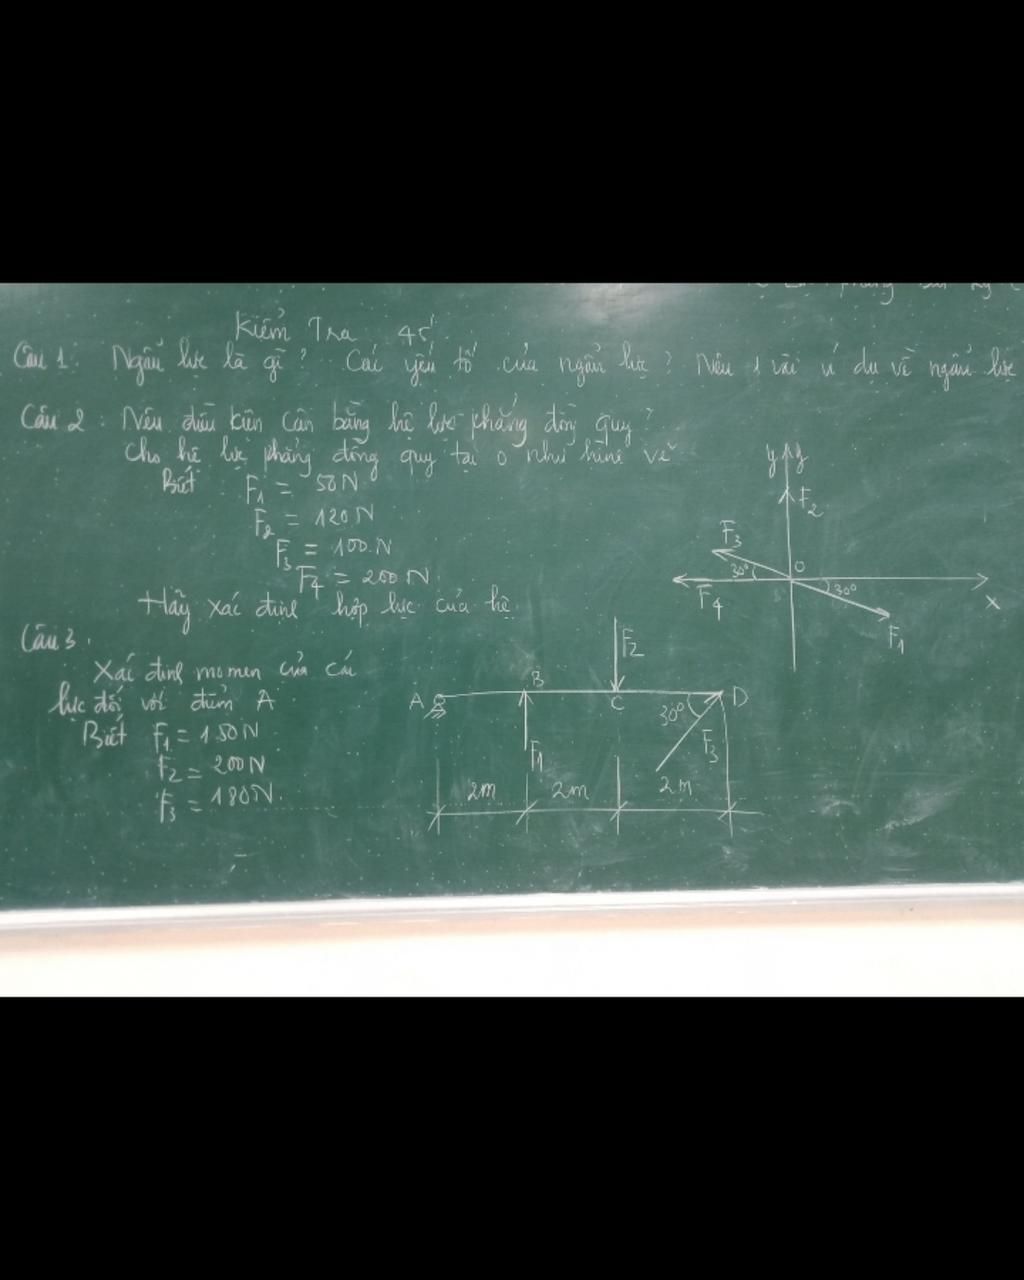 Kiểm Tra 45'
Câu 1: Ngẫu lực là gì? Các yếu tố của ngẫu lực? Nêu 1 vài ví dụ về ngẫu lực
Câu 2: Nêu điều kiện cân bằng hệ lực phẳng đồng quy?
Cho hệ lực phẳng đồng quy tại O như hình vẽ
Biết F₁ = 50N
F₂ = 120N
F₃ = 100N
F₄ = 200N
Hãy xác định hợp lực của hệ.
y
F₂
F₃
30°
O
F₄
30°
x
F₁
Câu 3.
Xác định momen của các
lực đối với điểm A
Biết F₁ = 150N
F₂ = 200N
F₃ = 180N.
F₂
A B C D
30°
F₁ F₃
2m 2m 2m